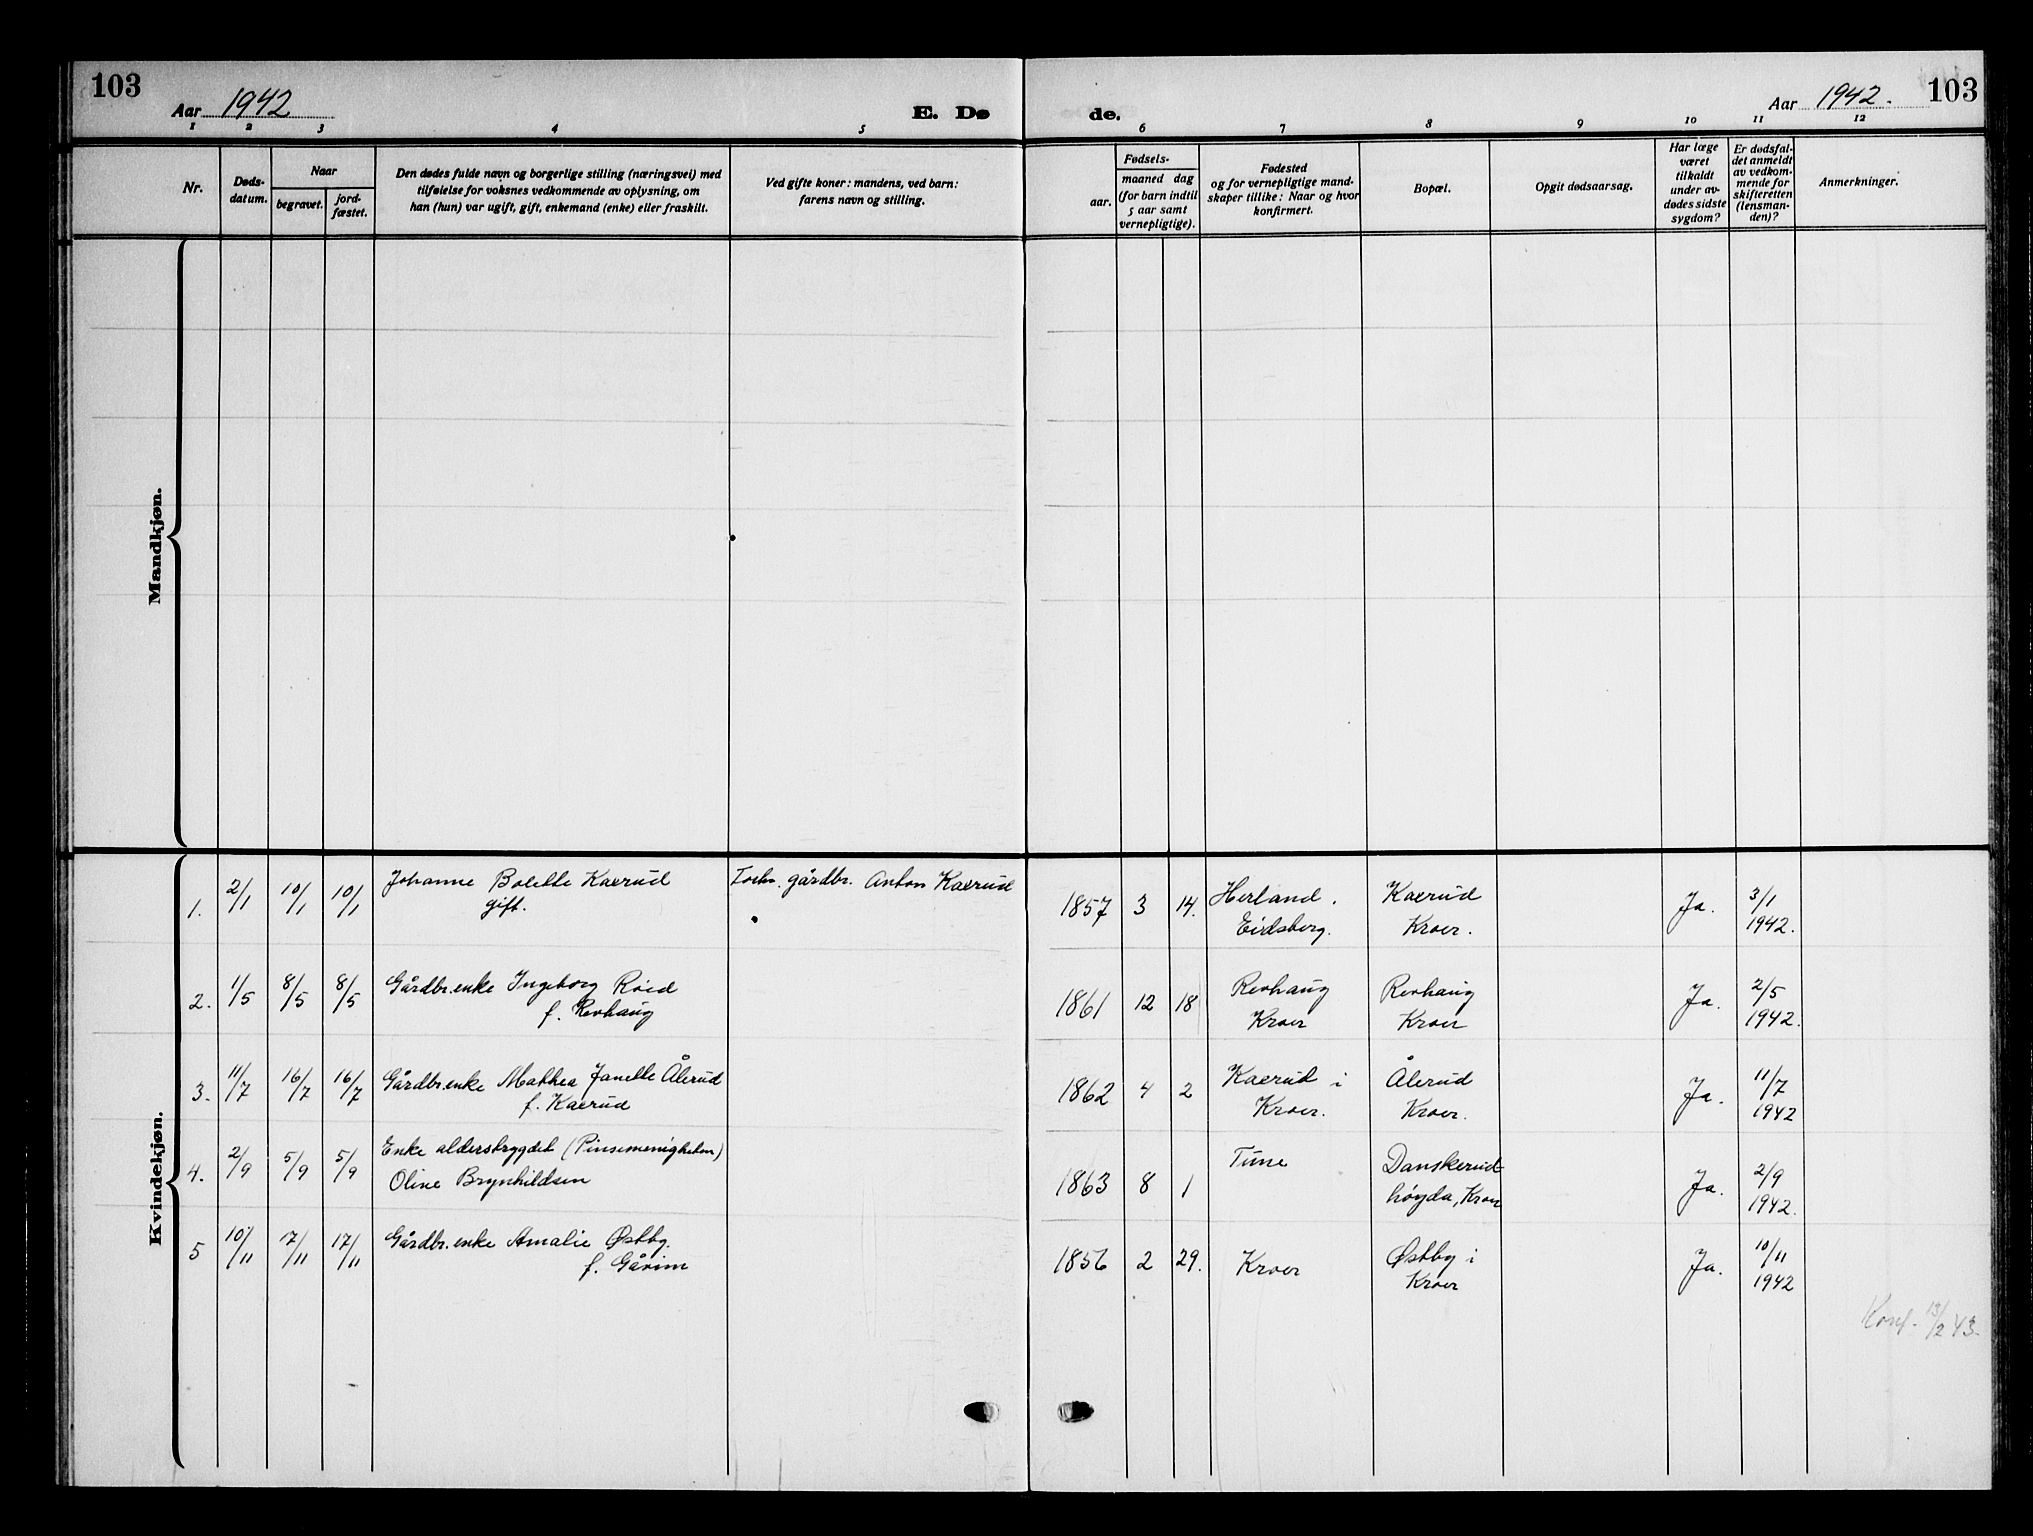 103
Aar 1942
E. Dø
de.
Aar 1942.
103
1 2 3 4 5 6 7 8 9 10 11 12
Nr.
Døds-
datum.
Naar
begravet.
jord-
fæstet.
Den dødes fulde navn og borgerlige stilling (næringsvei) med
tilføielse for voksnes vedkommende av oplysning, om
han (hun) var ugift, gift, enkemand (enke) eller fraskilt.
Ved gifte koner: mandens, ved barn:
farens navn og stilling.
Fødsels-
aar.
maaned dag
(for barn indtil
5 aar samt
vernepligtige).
Fødested
og for vernepligtige mand-
skaper tillike: Naar og hvor
konfirmert.
Bopæl.
Opgit dødsaarsag.
Har læge
været
tilkaldt
under av-
dødes sidste
sygdom?
Er dødsfal-
det anmeldt
av vedkom-
mende for
skifteretten
(lensman-
den)?
Anmerkninger.
Mandkjøn.
Kvindekjøn.
1. 2/1 10/1 10/1 Johanne Bolette Kaerud
gift.
Forhv. gårdbr. Anton Kaerud
1857 3 14. Herland.
Eidsberg.
Kaerud
Kroer.
Ja. 3/1
1942.
2. 1/5 8/5 8/5 Gårdbr.enke Ingeborg Røed
f. Revhaug
1861 12 18 Revhaug
Kroer
Revhaug
Kroer
Ja. 2/5
1942.
3. 11/7 16/7 16/7 Gårdbr.enke Mathea Janette Ålerud
f. Kaerud
1862 4 2 Kaerud i
Kroer.
Ålerud
Kroer.
Ja. 11/7
1942
4. 2/9 5/9 5/9 Enke alderstrygdet (Pinsemenigheten)
Oline Brynhildsen
1863 8 1 Tune
Danskerud-
høgda, Kroer
Ja. 2/9
1942.
5 10/11 17/11 17/11 Gårdbr.enke Amalie Østby.
f. Gåvim
1856 2 29. Kroer
Østby i
Kroer
Ja. 10/11
1942
Konf. 13/2 43.